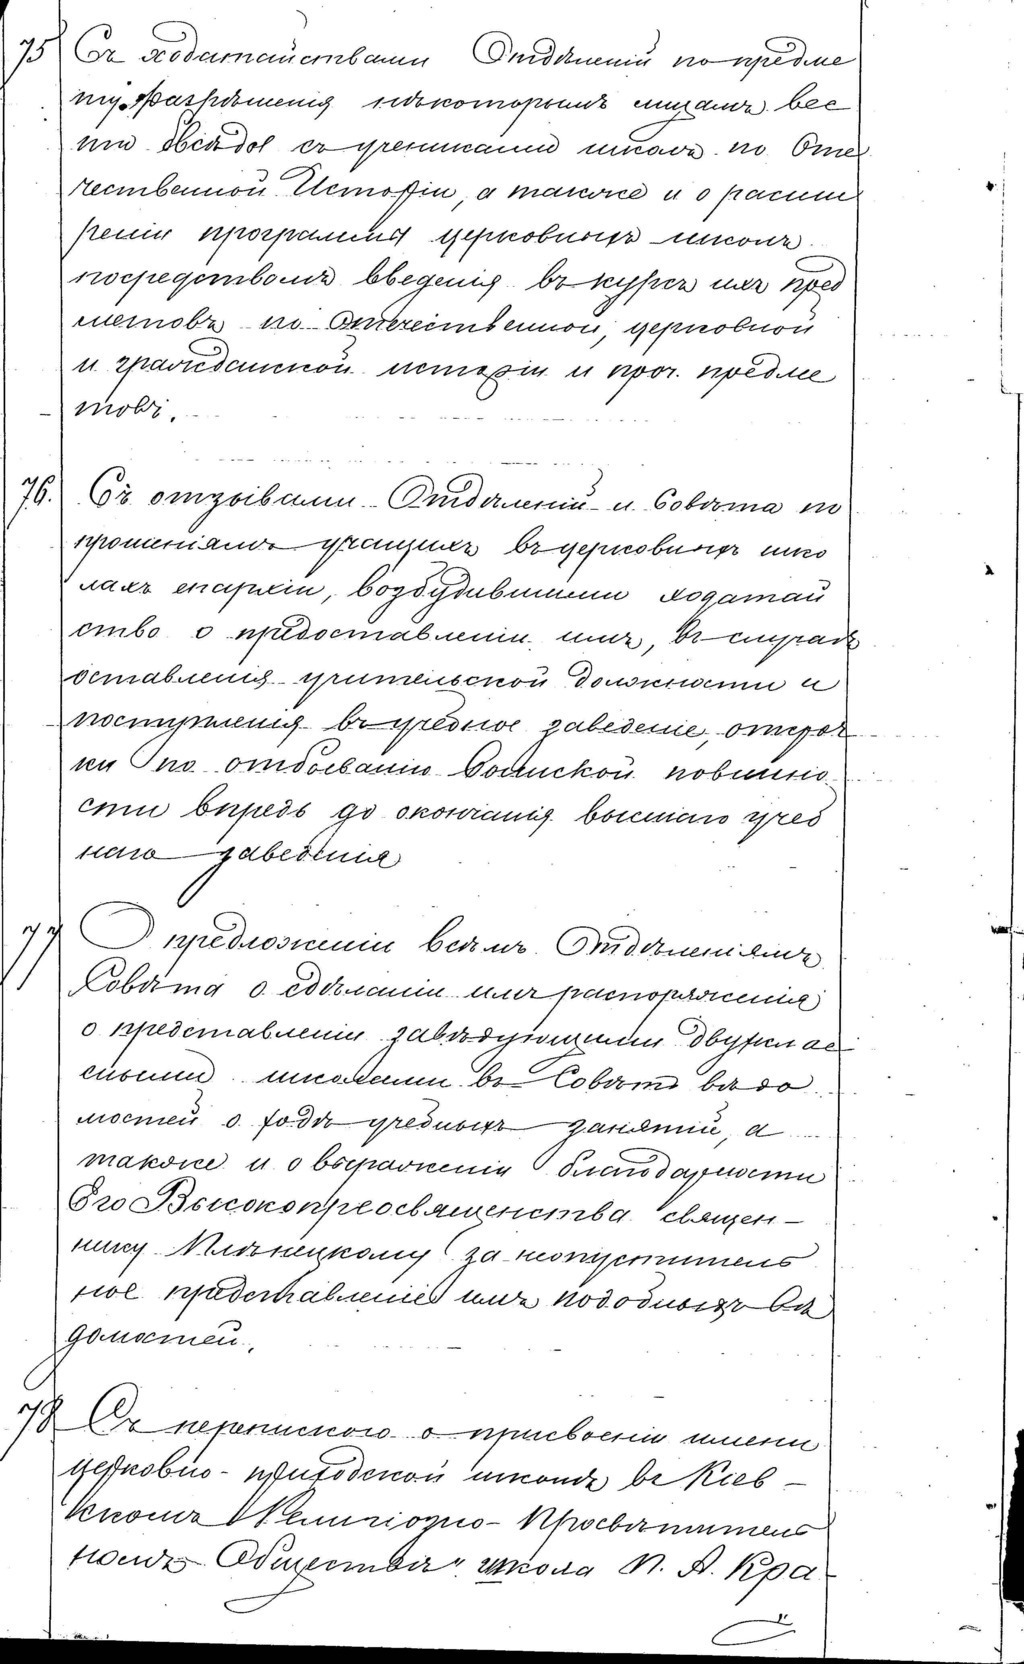 75 Съ ходатайствами Отдѣленій по предме
ту разрѣшенія нѣкоторымъ лицамъ вес
ти бесѣды съ учениками школъ по Оте
чественной Исторіи, а также и о расши
реніи программы церковныхъ школъ
посредствомъ введенія въ курсъ ихъ пред
метовъ по Отечественной, церковной
и гражданской исторіи и проч. предме
товъ.
76. Съ отзывами Отдѣленій и Совѣта по
прошеніямъ учащихъ въ церковныхъ шко
лахъ епархіи, возбудившими ходатай
ство о предоставленіи имъ, въ случаѣ
оставленія учительской должности и
поступленія въ учебное заведеніе, отсроч
ки по отбыванію воинской повинно
сти впредь до окончанія высшаго учеб
наго заведенія
77 О предложеніи всѣмъ Отдѣленіямъ
Совѣта о сдѣланіи ими распоряженія
о представленіи завѣдующими двуклас
сными школами въ Совѣтъ вѣдо
мостей о ходѣ учебныхъ занятій, а
также и о выраженіи благодарности
Его Высокопреосвященства священ-
нику за неопуститель
ное представленіе имъ подобныхъ вѣ
домостей.
78 Съ перепискою о присвоеніи имени
церковно-приходской школѣ въ Кіев-
скомъ Религіозно-Просвѣтитель
номъ Обществѣ "школа П. А. Кра-